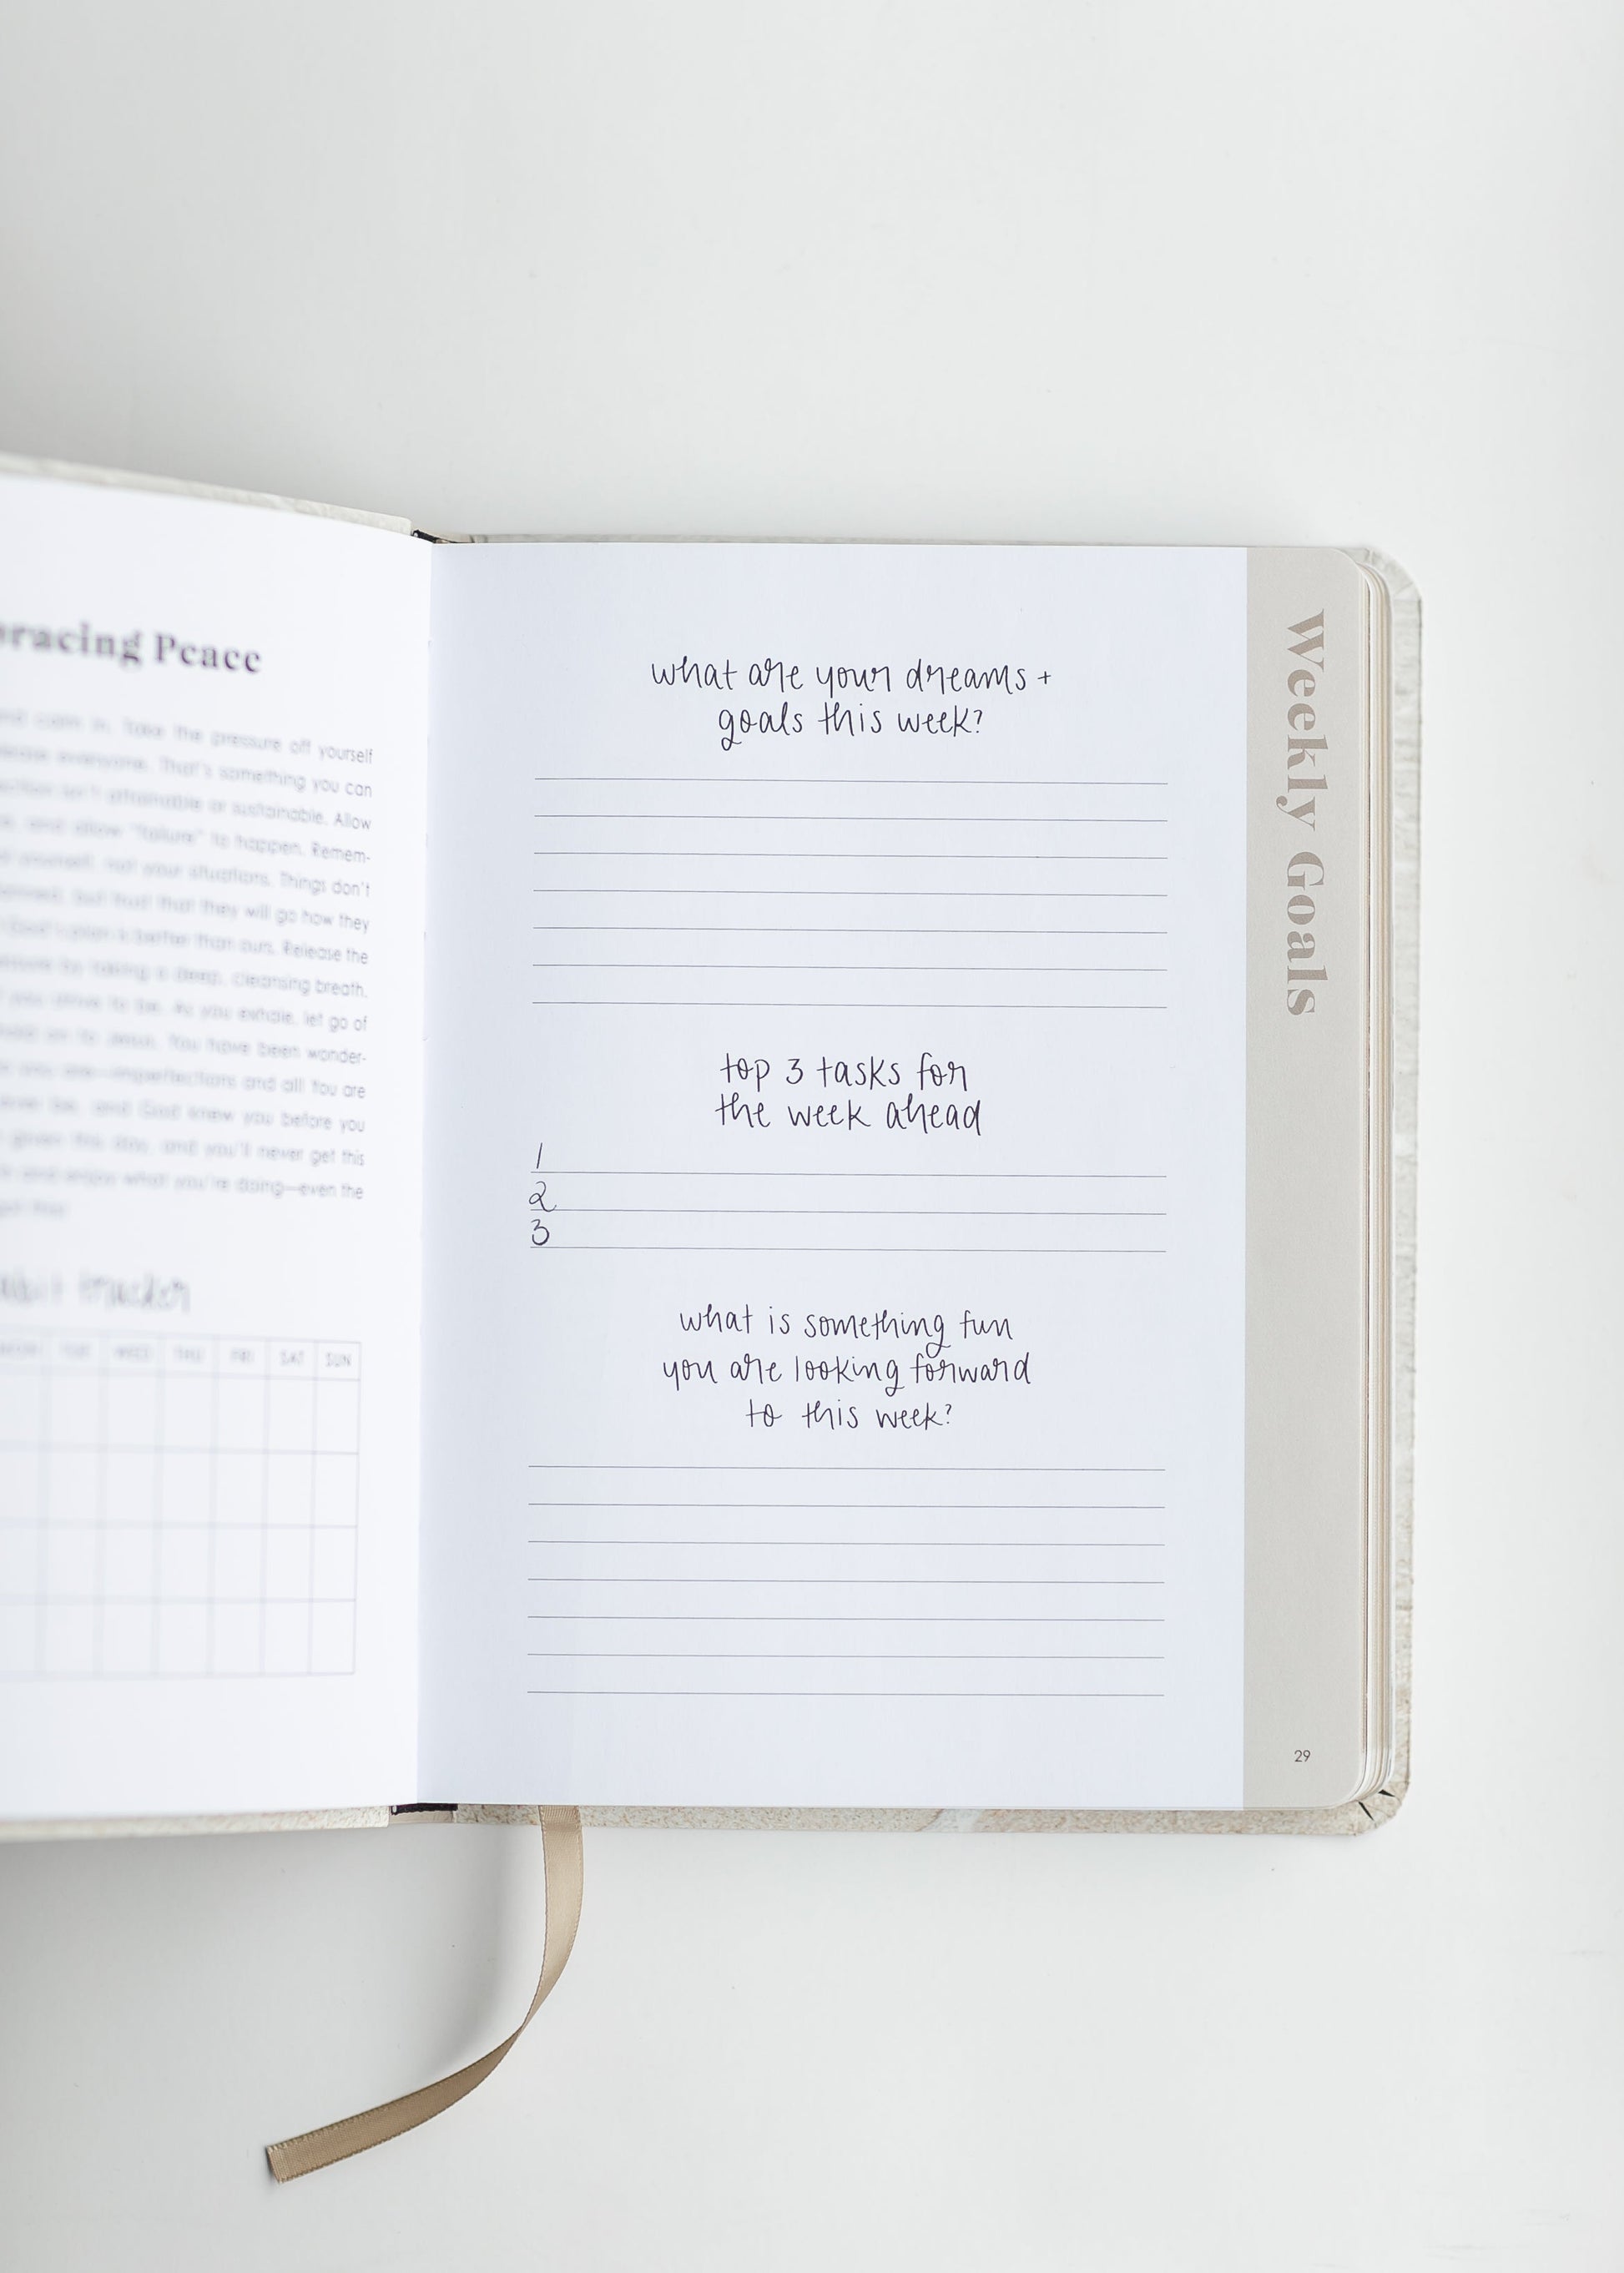 Peace
the pressure off yourself
That's something you can
or sustainable. Allow
to happen. Remem-
not your situations. Things don't
but trust that they will go how they
plan is better than ours. Release the
by taking a deep, cleansing breath.
you strive to be. As you exhale, let go of
to Jesus. You have been wonder-
imperfections and all! You are
and God knew you before you
given this day, and you'll never get this
and enjoy what you're doing—even the
tracker
TUE WED THU FRI SAT SUN
what are your dreams +
goals this week?
top 3 tasks for
the week ahead
1
2
3
what is something fun
you are looking forward
to this week?
Weekly Goals
29